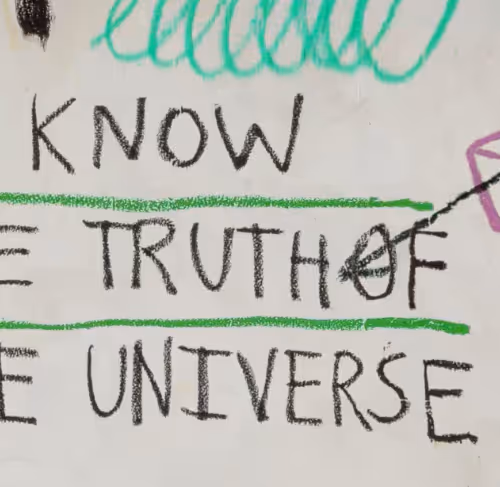 KNOW
E TRUTH OF
E UNIVERSE